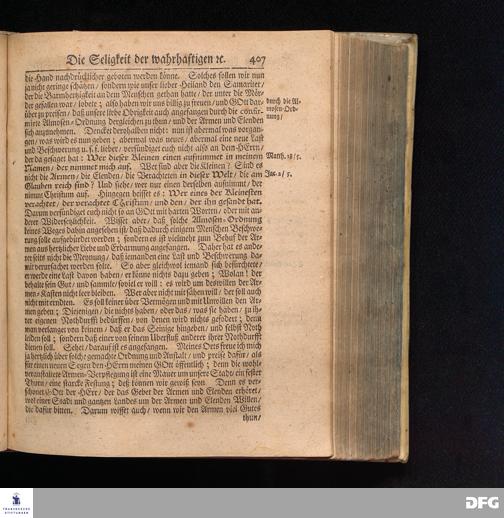 Die Seligkeit der wahrhaftigen ꝛc. 407
die Hand nachdrücklicher geboten werden könne. Solches sollen wir nun
ja nicht geringe schätzen / sondern wie unser lieber Heiland den Samariter /
der die Barmhertzigkeit an dem Menschen gethan hatte / der unter die Mör-
der gefallen war / lobete ; also haben wir uns billig zu freuen / und GOtt dar-
über zu preisen / daß unsere liebe Obrigkeit auch angefangen durch die confir-
mirte Almosen-Ordnung dergleichen zu thun / und der Armen und Elenden
sich anzunehmen. Dencket derohalben nicht: nun ist abermal was vorgan-
gen / was wird es nun geben ; abermal was neues / abermal eine neue Last
und Beschwerung u. s. f. lieber / versündiget euch nicht also an dem HErrn /
der da gesaget hat : Wer dieser Kleinen einen aufnimmet in meinem
Namen / der nimmet mich auf. Wer sind aber die Kleinen ? Sind es
nicht die Armen / die Elenden / die Verachteten in dieser Welt / die am
Glauben reich sind ? Und siehe / wer nur einen derselben aufnimmt / der
nimmt Christum auf. Hinwegen heisset es : Wer eines der Kleinesten
verachtet / der verachtet Christum / und den / der ihn gesandt hat.
Darum versündiget euch nicht so an GOtt mit harten Worten / oder mit an-
derer Widersetzlichkeit. Wisset aber / daß solche Almosen-Ordnung
keines Weges dahin angesehen ist / daß dadurch einigem Menschen Beschwe-
rung solle aufgebürdet werden ; sondern es ist vielmehr zum Behuf der Ar-
men aus hertzlicher Liebe und Erbarmung angefangen. Daher hat es ande-
rer seits nicht die Meynung / daß iemanden eine Last und Beschwerung da-
mit verursachet werden solte. So aber gleichwol iemand sich befürchtete /
er werde eine Last davon haben / er könne nichts dazu geben ; Wolan ! der
behalte sein Gut / und sammle / soviel er will : es wird um deswillen der Ar-
men-Kasten nicht leer bleiben. Wer aber nicht mit säen will / der soll auch
nicht mit erndten. Es soll keinem über Vermögen und mit Unwillen den Ar-
men geben ; Diejenigen / die nichts haben / oder das / was sie haben / zu ih-
rer eigenen Nothdurfft bedürffen / von denen wird nichts gefodert ; denn
man verlanget von keinem / daß er das Seinige hingeben / und selbst Noth
leiden soll ; sondern daß einer von seinem Uberfluß anderer ihrer Nothdurfft
dienen soll. Sehet / darauf ist es angefangen. Meines Orts freue ich mich
ja hertzlich über solche gemachte Ordnung und Anstalt / und preise dafür / als
für einen neuen Segen des HErrn meinen GOtt öffentlich ; denn die wohl-
veranstaltete Armen-Verpflegung ist eine Mauer um unsere Stadt / ein fester
Thurn / eine starcke Festung ; deß können wir gewiß seyn. Denn es ver-
schonet GOtt der HErr / der das Gebet der Armen und Elenden erhöret /
wol einer Stadt und gantzen Landes um der Armen und Elenden Willen /
die dafür bitten. Darum wisset auch / wenn wir den Armen viel Gutes
thun /
durch die Al-
mosen-Ord-
nung /
Matth. 18 / 5.
Jac. 2 / 5.
FRANCKESCHE
STIFTUNGEN
DFG